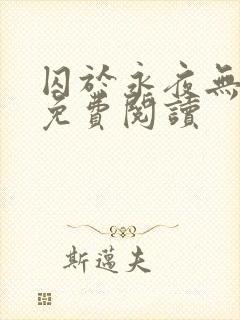 囚於永夜無
免費閱讀
斯邁夫